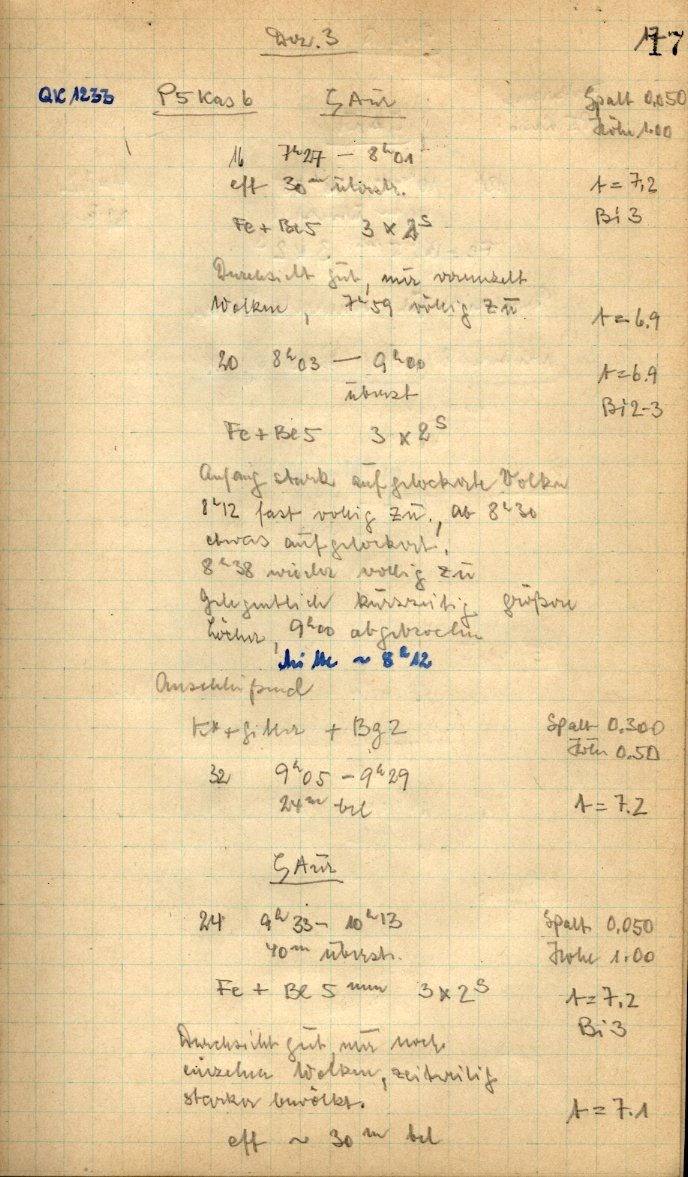 Dez. 3
17
QK 1233 P5 Kas b ζ Aur Spalt 0.050
Höhe 1.00
16 7h27 — 8h01
eff 30m überstr. t = 7.2
Fe + Be 5 3 x 2s Bi 3
Durchsicht gut, nur vereinzelt
Wolken, 7h59 völlig zu t = 6.9
20 8h03 — 9h00 t = 6.9
überst Bi 2-3
Fe + Be 5 3 x 2s
Anfang stark aufgelockerte Wolken
8h12 fast völlig zu, ab 8h30
etwas aufgelockert,
8h38 wieder völlig zu
Gelegentlich kurzzeitig größere
Löcher, 9h00 abgebrochen
Mitte ~ 8h12
Anschließend
+ Gitter + Bg2 Spalt 0.300
Höhe 0.50
32 9h05 - 9h29
24m bel t = 7.2
ζ Aur
24 9h33 - 10h13 Spalt 0.050
40m überstr. Höhe 1.00
Fe + Be 5 mm 3 x 2s t = 7.2
Bi 3
Durchsicht gut, nur noch
einzelne Wolken, zeitweilig
starker bewölkt. t = 7.1
eff ~ 30m bel